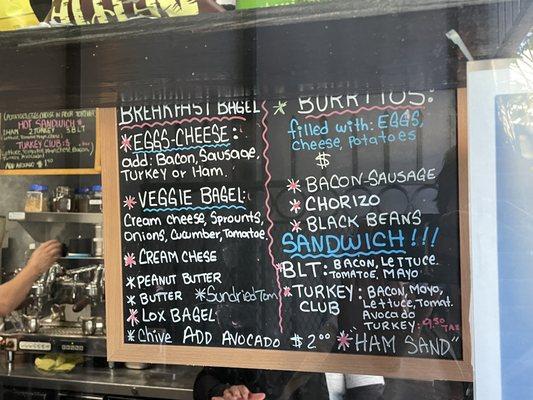 BREAKFAST BAGEL
* EGGS-CHEESE:
add: Bacon, Sausage,
Turkey or Ham.
* VEGGIE BAGEL:
Cream cheese, Sprounts,
Onions, Cucumber, Tomatoe.
* CREAM CHESE
* PEANUT BUTTER
* BUTTER * Sundried Tom
* LOX BAGEL
* Chive ADD AVOCADO $2.00
* BURRITOS:
filled with: EGGS,
Cheese, Potatoes
$
* BACON-SAUSAGE
* CHORIZO
* BLACK BEANS
SANDWICH!!!
* BLT: BACON, LETTUCE.
TOMATOE, MAYO
* TURKEY CLUB : BACON, MAYO,
LETTUCE, TOMAT.
AVOCADO
TURKEY: 9.50 TAX
* "HAM SAND"
HOT SANDWICH
1 HAM 2 TURKEY 3 BLT
TURKEY CLUB:
ADD AVOCADO